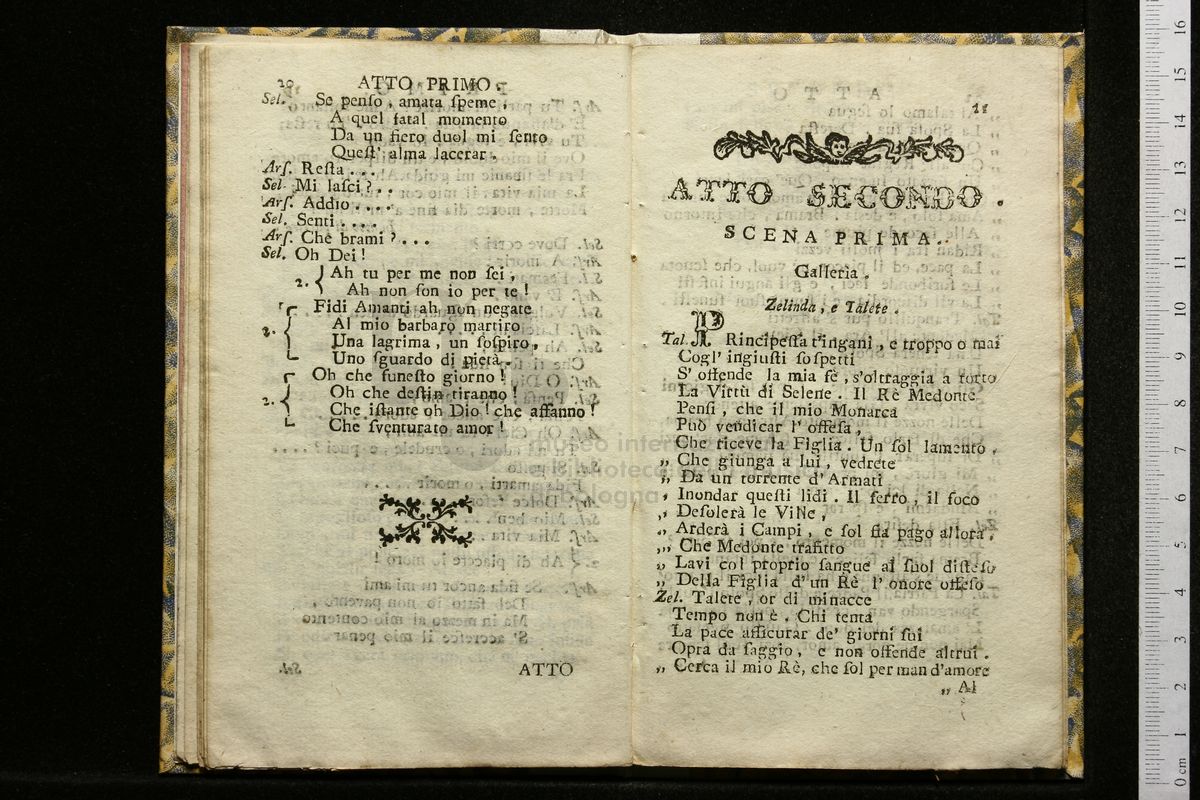 20 ATTO PRIMO.
Sel. Se penso, amata speme,
A quel fatal momento
Da un fiero duol mi sento
Quest' alma lacerar.
Ars. Resta . . .
Sel. Mi lasci ? . .
Ars. Addio . . . .
Sel. Senti . . . .
Ars. Chè brami ? . . .
Sel. Oh Dei !
2. { Ah tu per me non sei,
Ah non son io per te !
2. { Fidi Amanti ah non negate
Al mio barbaro martiro
Una lagrima, un sospiro,
Uno sguardo di pietà.
2. { Oh che funesto giorno !
Oh che destin tiranno !
Che istante oh Dio ! che affanno !
Che sventurato amor !
ATTO
21
ATTO SECONDO.
SCENA PRIMA.
Galleria.
Zelinda, e Talete.
Tal. PRincipessa t'ingani, e troppo o mai
Cogl' ingiusti sospetti
S' offende la mia fè, s'oltraggia a torto
La Virtù di Selene. Il Rè Medonte
Pensi, che il mio Monarca
Può vendicar l' offesa,
Che riceve la Figlia. Un sol lamento,
„ Che giunga a lui, vedrete
„ Da un torrente d'Armati
, Inondar questi lidi. Il ferro, il foco
„ Desolerà le Ville,
„ Arderà i Campi, e sol fia pago allora,
„ Che Medonte trafitto
„ Lavi col proprio sangue al suol disteso
„ Della Figlia d' un Rè, l' onore offeso
Zel. Talete, or di minacce
Tempo non è. Chi tenta
La pace assicurar de' giorni sui
Opra da saggio, e non offende altrui.
„ Cerca il mio Rè, che sol per man d'amore
„ Al
museo internazionale
biblioteca della musica
Bologna
16
15
14
13
12
11
10
9
8
7
6
5
4
3
2
1
0 cm